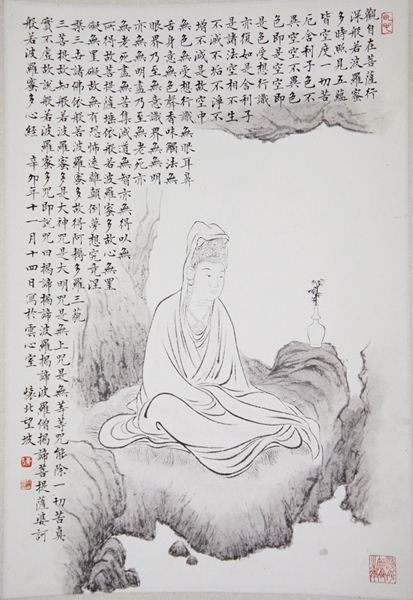 觀自在菩薩行
深般若波羅蜜
多時照見五蘊
皆空度一切苦
厄舍利子色不
異空空不異色
色即是空空即
是色受想行識
亦復如是舍利子
是諸法空相不生
不滅不垢不淨不
增不減是故空中
無色無受想行識無眼耳鼻
舌身意無色聲香味觸法無
眼界乃至無意識界無無明
亦無無明盡乃至無老死亦
無老死盡無苦集滅道無智亦無得以無
所得故菩提薩埵依般若波羅蜜多故心無罣
礙無罣礙故無有恐怖遠離顛倒夢想究竟涅
槃三世諸佛依般若波羅蜜多故得阿耨多羅三藐
三菩提故知般若波羅蜜多是大神咒是大明咒是無上咒是無等等咒能除一切苦真
實不虛故說般若波羅蜜多咒即說咒曰揭諦揭諦波羅揭諦波羅僧揭諦菩提薩婆訶
般若波羅蜜多心經 辛卯年十一月十四日寫於雲心室 北望坡